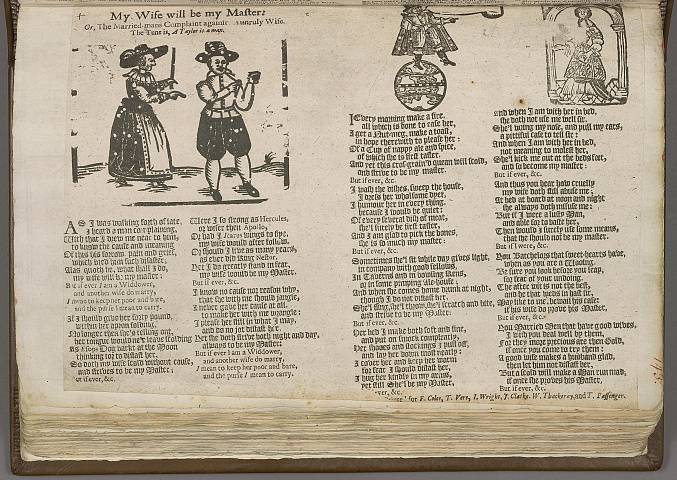 My Wife will be my Master:
Or, The Married-mans Complaint against unruly Wife.
The Tune is, A Taylor is a man.
AS I was walking forth of late,
I heard a man complaining,
With that I drew me near to him,
to know the cause and meaning
Of this his sorrow, pain and grief,
which bred him such disaster;
Alas quoth he, what shall I do,
my wife will be my master:
But if ever I am a Widdower,
and another wife do marry,
I mean to keep her poor and bare,
and the purse I mean to carry.
If I should give her forty pound,
within her apron folding,
No longer then she's telling out,
her tongue would not leave scolding
As Esops Dog barkt at the Moon
thinking for to distast her,
So doth my wife scold without cause,
and strives to be my Master;
But if ever, &c.
Were I so strong as Hercules,
or wiser then Apollo,
Or had I Icarus wings to flye,
my wife would after follow.
Or should I live as many years,
as ever did King Nestor,
Yet I do greatly stand in fear,
my wife would be my Master.
But if ever, &c.
I know no cause nor reason why,
that she with me should jangle,
I never gave her cause at all,
to make her with me wrangle:
I please her still in what I may,
and do no jot distast her,
Yet she doth strive both night and day,
always to be my Master:
But if ever I am a Widdower,
and another wife do marry,
I mean to keep her poor and bare,
and the purse I mean to carry.
I Every morning make a fire,
all which is done to ease her,
I get a Nutmeg, make a toast,
in hope therewith to please her:
Of a Cup of nappy ale and spice,
of which she is first taster,
And yet this cros-grain'd quean will scold,
and strive to be my master.
But if ever, &c.
I wash the dishes, sweep the house,
I dress her wholsome dyet,
I humour her in every thing,
because I would be quiet:
Of every several dish of meat,
she'l surely be first taster,
And I am glad to pick the bones,
she is so much my master:
But if ever, &c.
Sometimes she'l sit while day gives light,
in company with good fellows,
In Taverns and in bowsing Kens,
or in some pimping Ale-house:
And when she comes home drunk at night,
though I do not distast her,
She'l fling, she'l throw, she'l scratch and bite,
and strive to be my Master:
But if ever, &c.
Her bed I make both soft and fine,
and put on smock compleatly,
Her shooes and stockings I pull off,
and lay her down most neatly:
I cover her and keep her warm,
for fear I should distast her,
I hug her kindly in my arms,
yet still She'l be my Master.
ever, &c.
and when I am with her in bed,
she doth not use me well sir.
She'l wring my nose, and pull my ears,
a pittiful case to tell sir:
And when I am with her in bed,
not meaning to molest her,
She'l kick me out at the beds feet,
and so become my master:
But if ever, &c.
And thus you hear how cruelly
my wife doth still abuse me;
At bed at board at noon and night
she always doth misuse me:
But if I were a lusty Man,
and able for to baste her,
Then would I surely use some means,
that she should not be my master.
But if I were, &c.
You Batchelors that sweet-hearts have,
when as you are a Wooing,
Be sure you look before you leap,
for fear of your undoing.
The after wit is not the best,
and he that weds in hast sir,
May like to me, bewail his case
if his wife do prove his Master,
But if ever, &c.
You Married Men that have good wives,
I wish you deal well by them,
For they more precious are then Gold,
if once you come to try them:
A good wife makes a husband glad,
then let him not distast her,
But a scold will make a Man run mad,
if once she proves his Master,
But if ever, &c.
for F. Coles, T. Vere, J. Wright, J. Clarke, W. Thackeray, and T. Passinger.